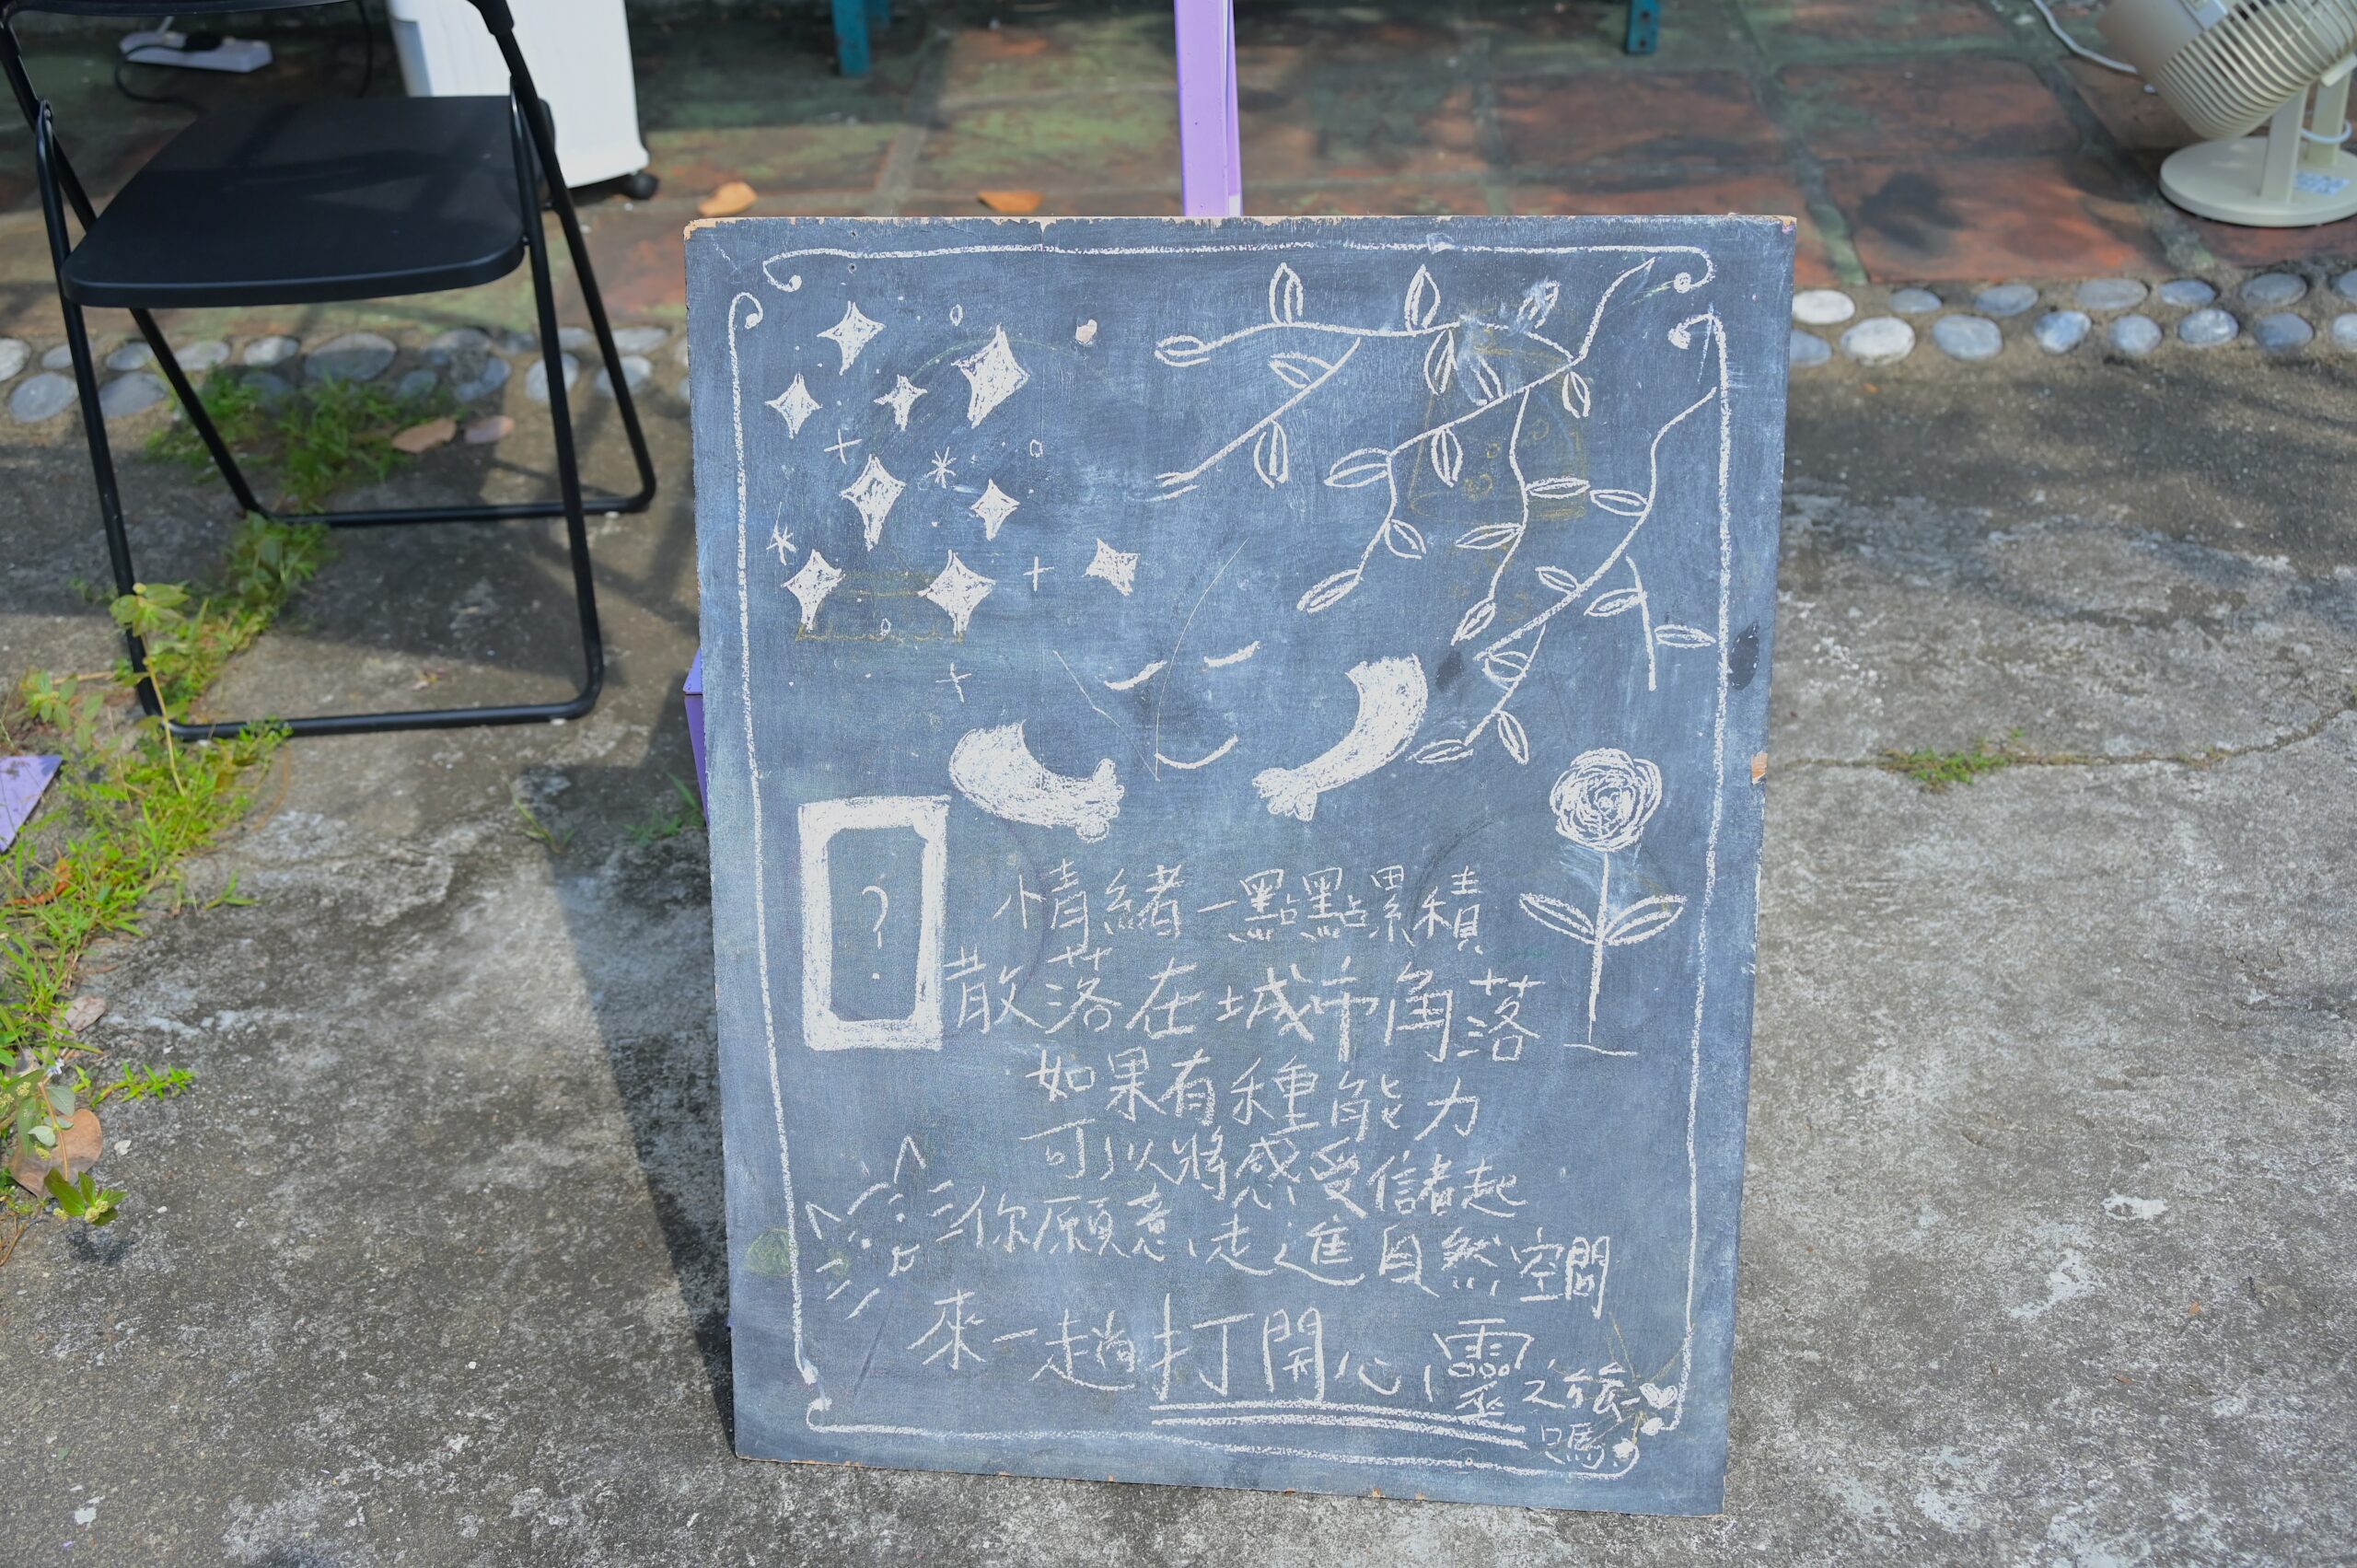 ?
情緒一點點累積
散落在城市角落
如果有種能力
可以將感受儲起
你願意走進自然空間
來一趟打開心靈之旅
嗎?